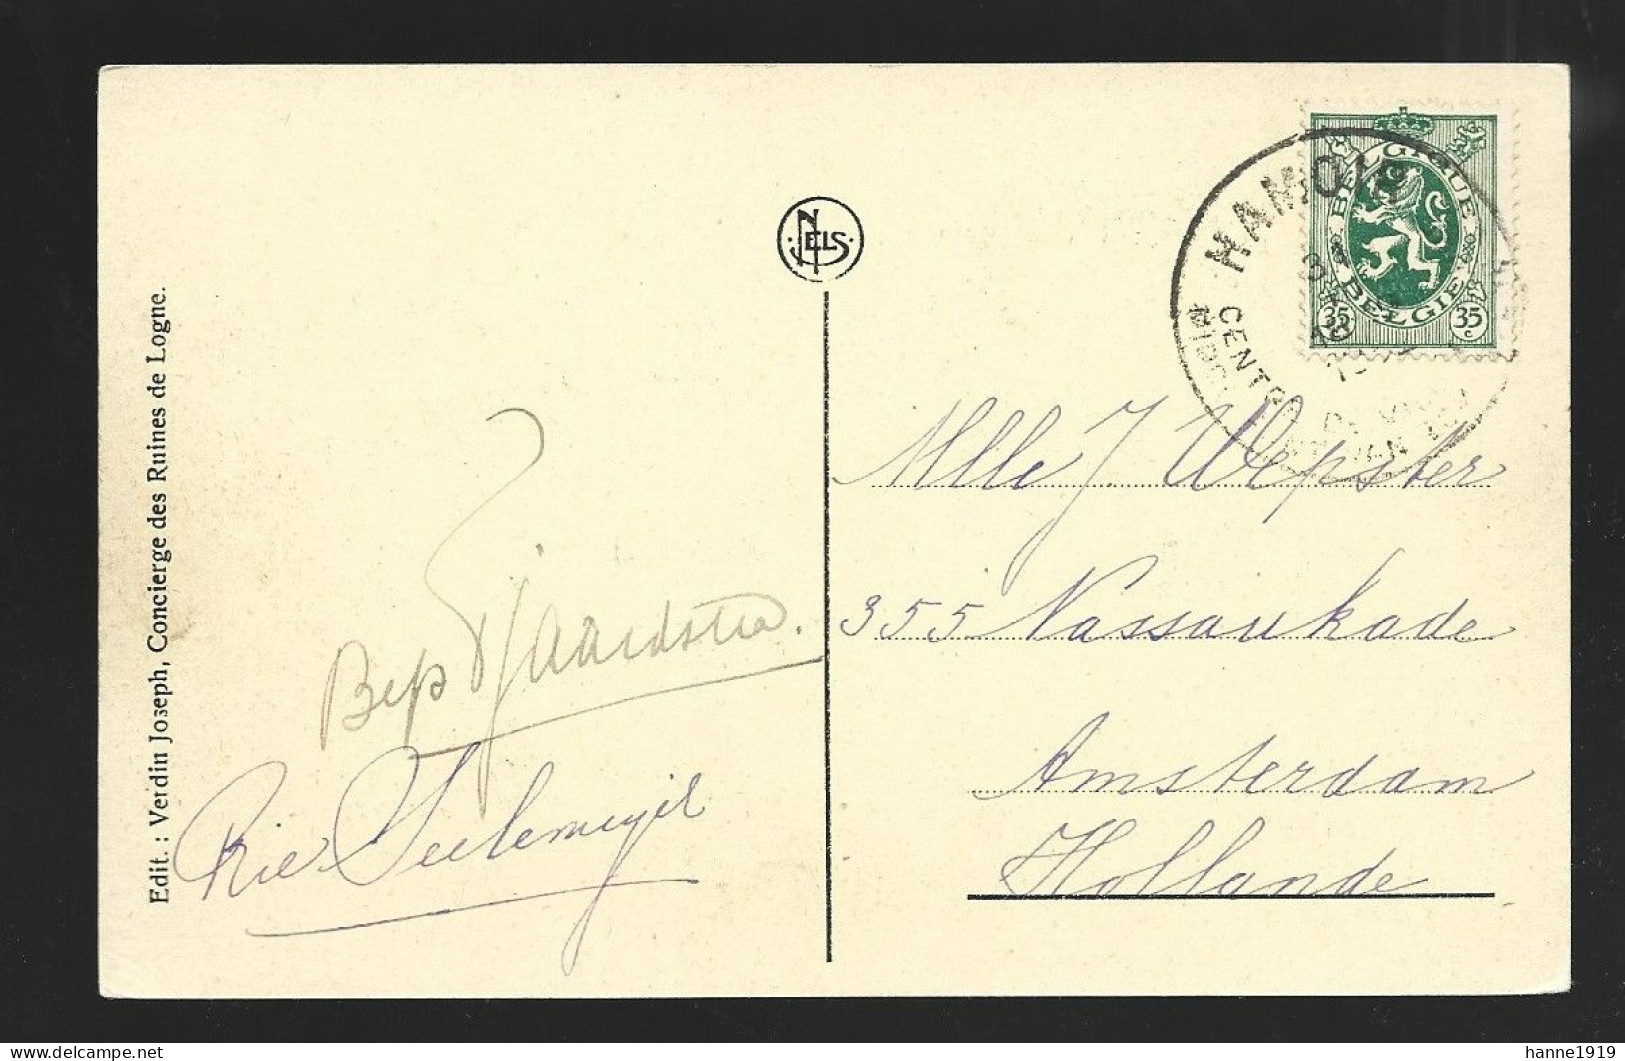 Edit. : Verdin Joseph, Concierge des Ruines de Logne.
NELS
HAMOIR
CENTR
BELGIQUE
BELGIE
35 c
35 c
Bep Tjaardstra.
Rie
Mlle J. Wepster
355 Nassaukade
Amsterdam
Hollande
hanne1919